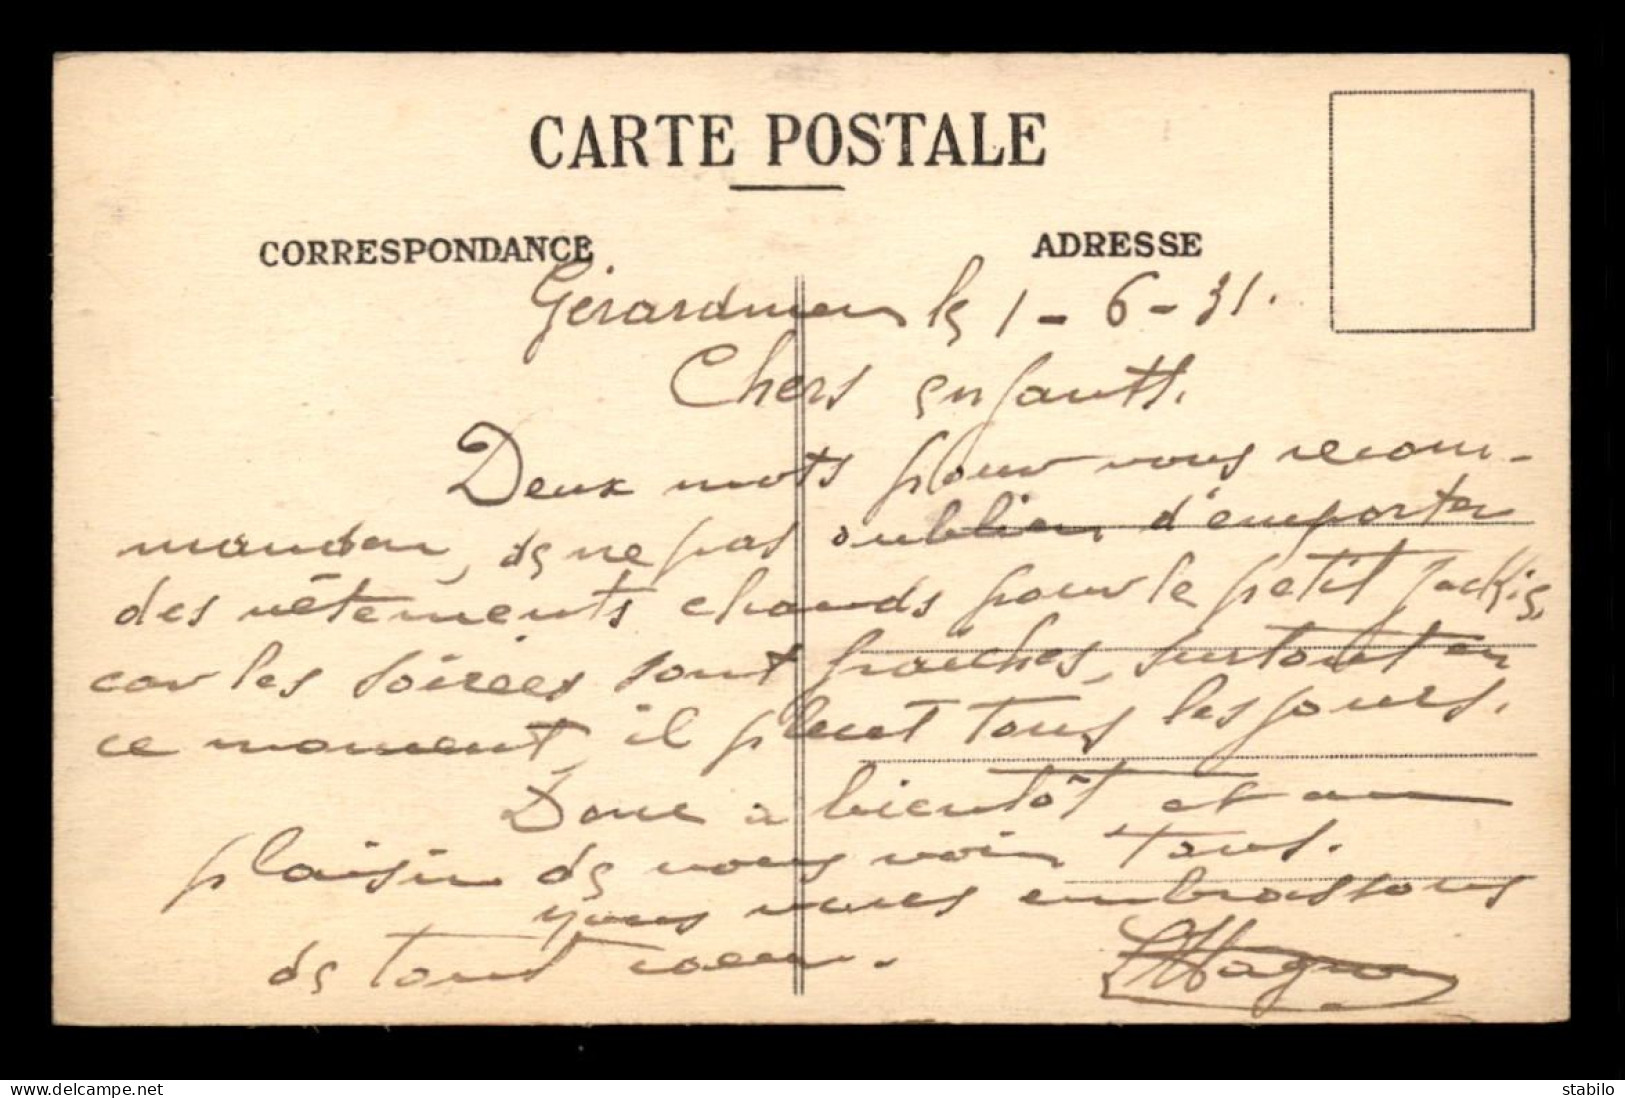 CARTE POSTALE
CORRESPONDANCE
ADRESSE
Gérardmer le 1-6-31.
Chers enfants.
Deux mots pour vous recom-
mander, de ne pas oublier d'emporter
des vêtements chauds pour le petit Jackie,
car les soirées sont fraîches, surtout en
ce moment, il pleut tous les jours.
Donc à bientôt et au
plaisir de vous voir tous.
Nous vous embrassons
de tout coeur.
www.delcampe.net
stabilo